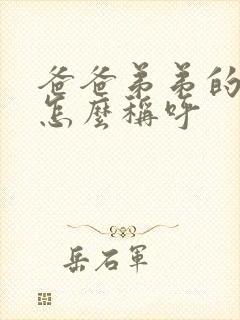 爸爸弟弟的
怎麼稱呼
岳石軍